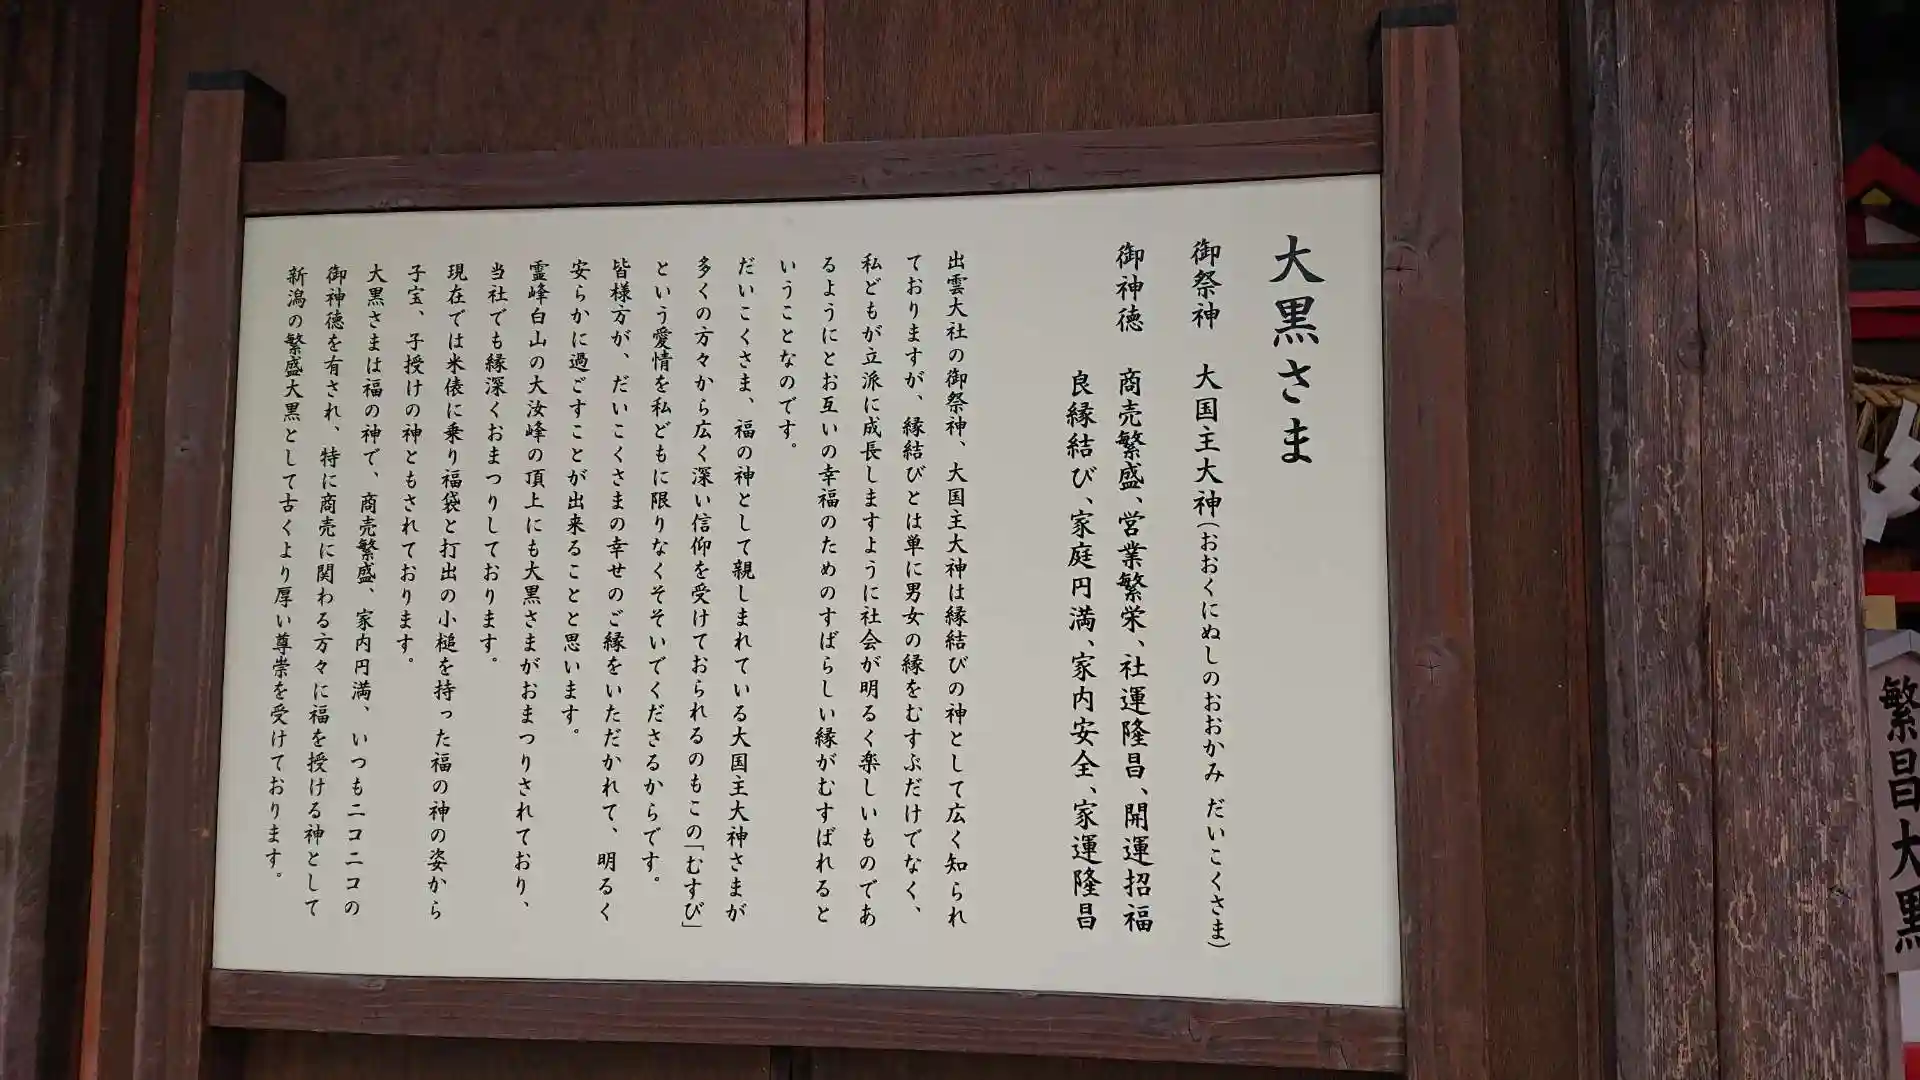 大黒さま
御祭神 大国主大神(おおくにぬしのおおかみ だいこくさま)
御神徳 商売繁盛、営業繁栄、社運隆昌、開運招福
良縁結び、家庭円満、家内安全、家運隆昌
出雲大社の御祭神、大国主大神は縁結びの神として広く知られ
ておりますが、縁結びとは単に男女の縁をむすぶだけでなく、
私どもが立派に成長しますように社会が明るく楽しいものであ
るようにとお互いの幸福のためのすばらしい縁がむすばれると
いうことなのです。
だいこくさま、福の神として親しまれている大国主大神さまが
多くの方々から広く深い信仰を受けておられるのもこの「むすび」
という愛情を私どもに限りなくそそいでくださるからです。
皆様方が、だいこくさまの幸せのご縁をいただかれて、明るく
安らかに過ごすことが出来ることと思います。
霊峰白山の大汝峰の頂上にも大黒さまがおまつりされており、
当社でも縁深くおまつりしております。
現在では米俵に乗り福袋と打出の小槌を持った福の神の姿から
子宝、子授けの神ともされております。
大黒さまは福の神で、商売繁盛、家内円満、いつもニコニコの
御神徳を有され、特に商売に関わる方々に福を授ける神として
新潟の繁盛大黒として古くより厚い尊崇を受けております。
繁昌大黒